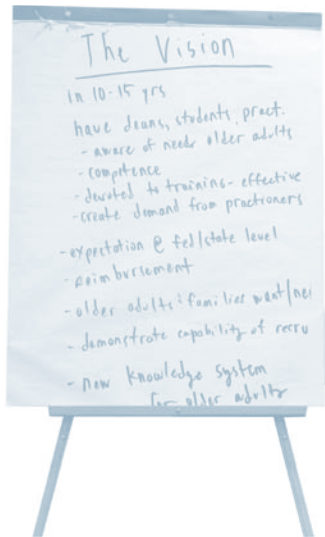 The Vision
in 10-15 yrs
have deans, students, pract.
- aware of needs older adults
- competence
- devoted to training - effective
- create demand from practioners
- expectation @ fed/state level
- reimbursement
- older adults & families want/
- demonstrate capability of
- new knowledge system
for older adults